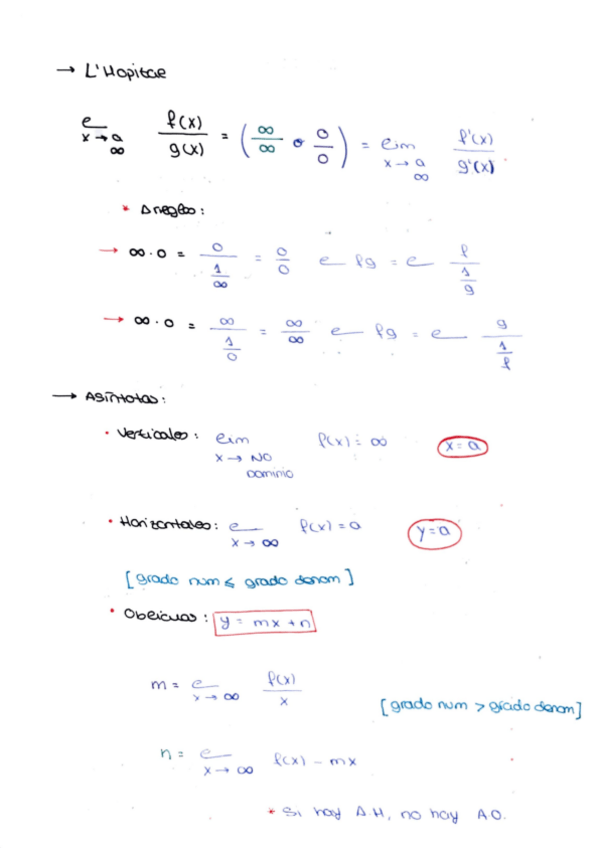 → L'Hopital
l x→a ∞ f(x)/g(x) = (∞/∞ o 0/0) = lim x→a ∞ f'(x)/g'(x)
* Arreglos:
→ ∞·0 = 0/(1/∞) = 0/0 l fg = l f/(1/g)
→ ∞·0 = ∞/(1/0) = ∞/∞ l fg = l g/(1/f)
→ Asíntotas:
• Verticales: lim x→NO dominio f(x) = ∞ x=a
• Horizontales: l x→∞ f(x) = a y=a
[grado num ≤ grado denom]
• Oblicuas: y = mx + n
m = l x→∞ f(x)/x
[grado num > grado denom]
n = l x→∞ f(x) - mx
* Si hay A.H, no hay A.O.